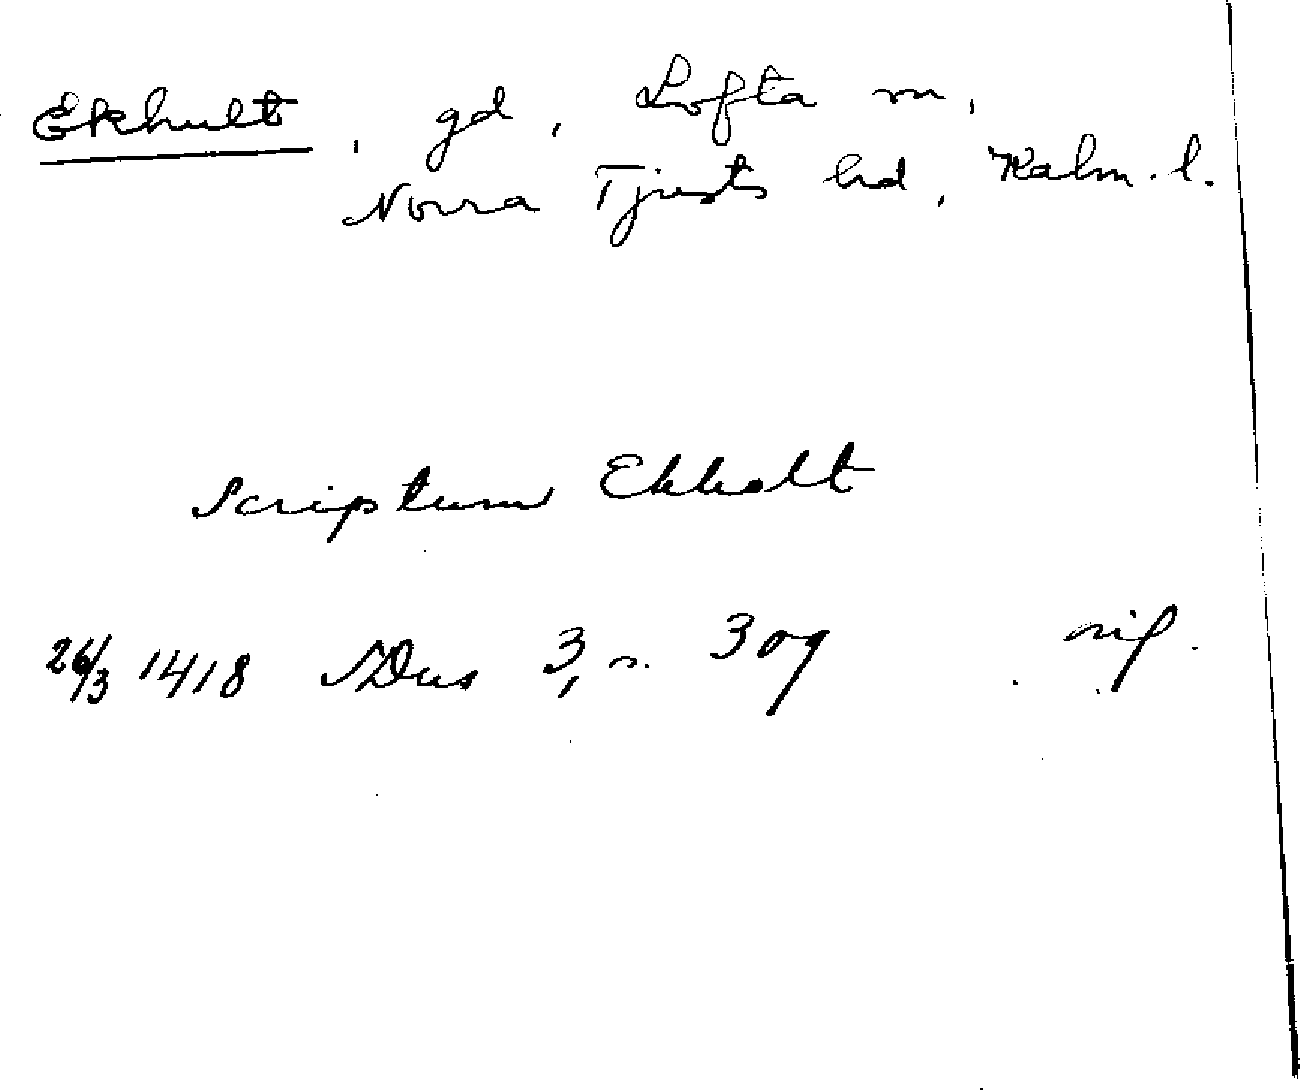 Ekhult, gd, Lofta sn,
Norra Tjusts hd, Kalm. l.
Scriptum Ekholt
26/3 1418 SDns 3, s. 309